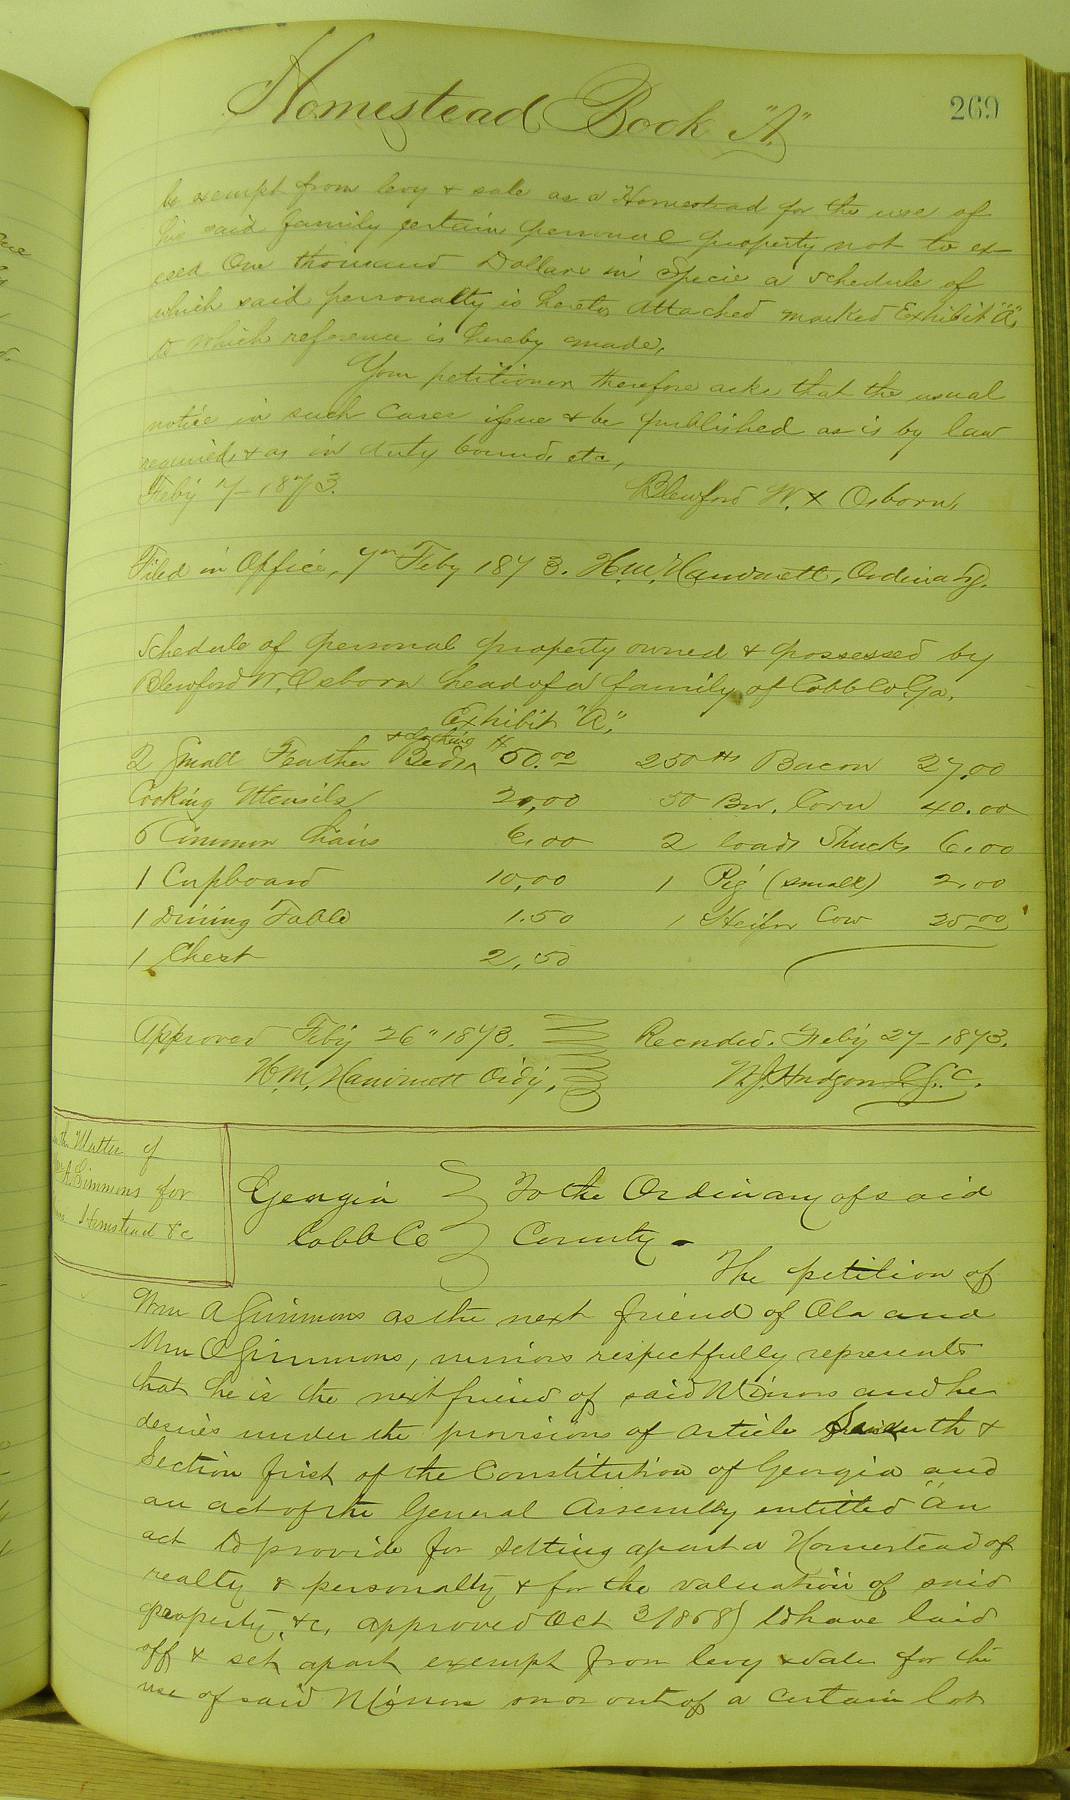 Homestead Book "A"
269
be exempt from levy & sale as a Homestead for the use of
his said family certain personal property not to ex-
ceed One thousand Dollars in Specie a schedule of
which said personalty is hereto attached marked Exhibit "A"
to which reference is hereby made,
Your petitioner therefore asks that the usual
notice in such cases issue & be published as is by law
required, & as in duty bound, etc,
Feby 7- 1873. Blewford W. X Osborn,
Filed in Office, 7th Feby 1873. H.M. Hammett, Ordinary.
Schedule of personal property owned & possessed by
Blewford W. Osborn head of a family of Cobb Co Ga.
Exhibit "A",
2 Small Feather Beds & Clothing $50.00 250 lbs Bacon 27,00
Cooking Utensils 20,00 50 Bu. Corn 40.00
6 Common Chairs 6.00 2 loads Shucks 6.00
1 Cupboard 10,00 1 Pig (small) 2.00
1 Dining Table 1.50 1 Heifer Cow 25 00
1 Chest 2,50
Approved Feby 26" 1873. Recorded. Feby 27- 1873.
H.M. Hammett Ordy, Hudgson C.
the Matter of
A. Simmons for
Hemstead &c
Georgia } To the Ordinary of said
Cobb Co } County-
The petition of
Wm A Simmons as the next friend of Ola and
Wm O Simmons, minors respectfully represents
that he is the next friend of said Minors and he
desires under the provisions of article &
Section first of the Constitution of Georgia and
an act of the General Assembly entitled "an
act to provide for setting apart a Homestead of
realty & personalty & for the valuation of said
property, &c, approved Oct 3/1868) to have laid
off & set apart exempt from levy & sale for the
use of said Minors on or out of a certain lot